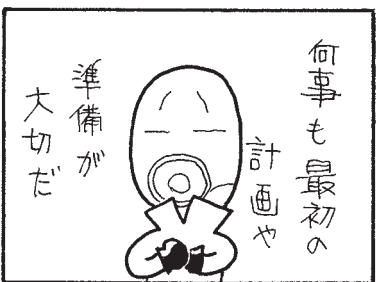 何事も最初の
計画や
準備が
大切だ